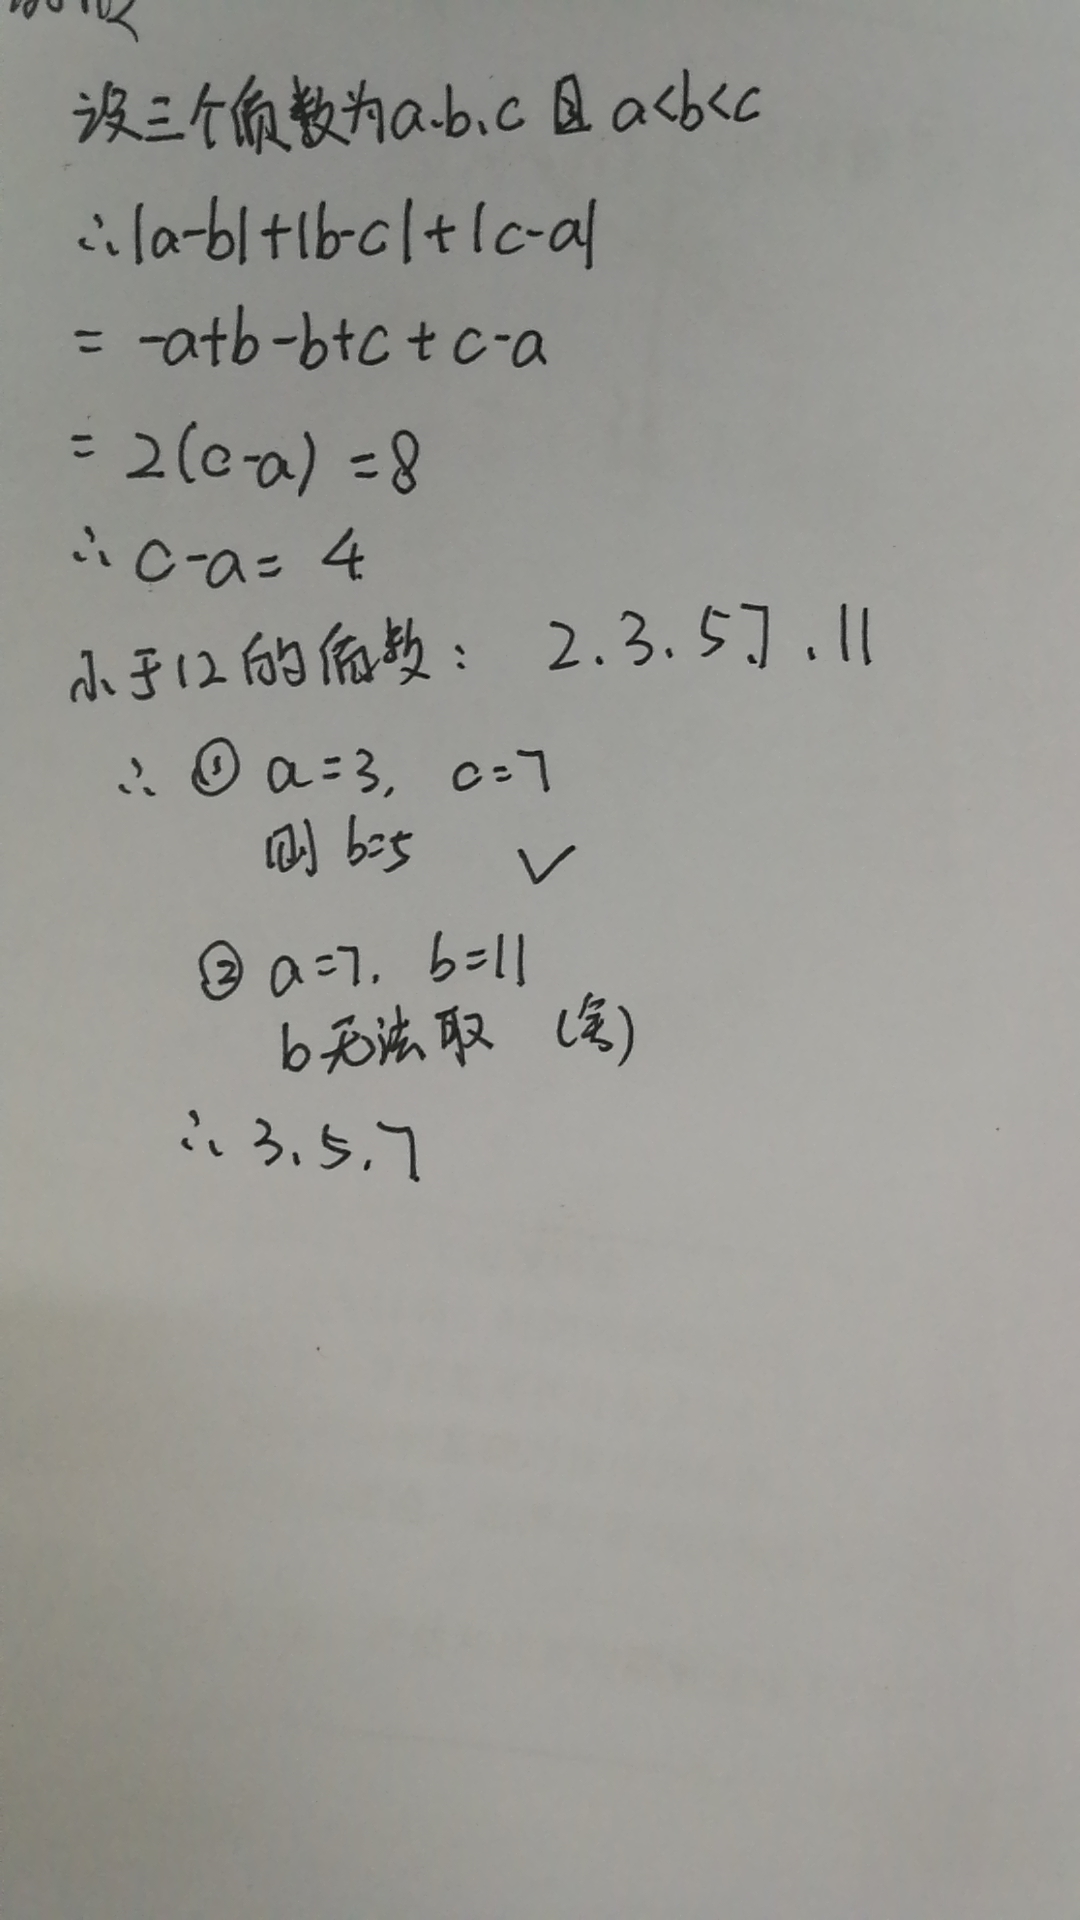 设三个质数为a.b、c 且 a<b<c
∴|a-b|+|b-c|+|c-a|
= -a+b-b+c+c-a
= 2(c-a) =8
∴ c-a= 4
小于12的质数: 2.3.5.7.11
∴ ① a=3, c=7
则 b=5 ✓
② a=7. b=11
b无法取 (舍)
∴ 3.5.7